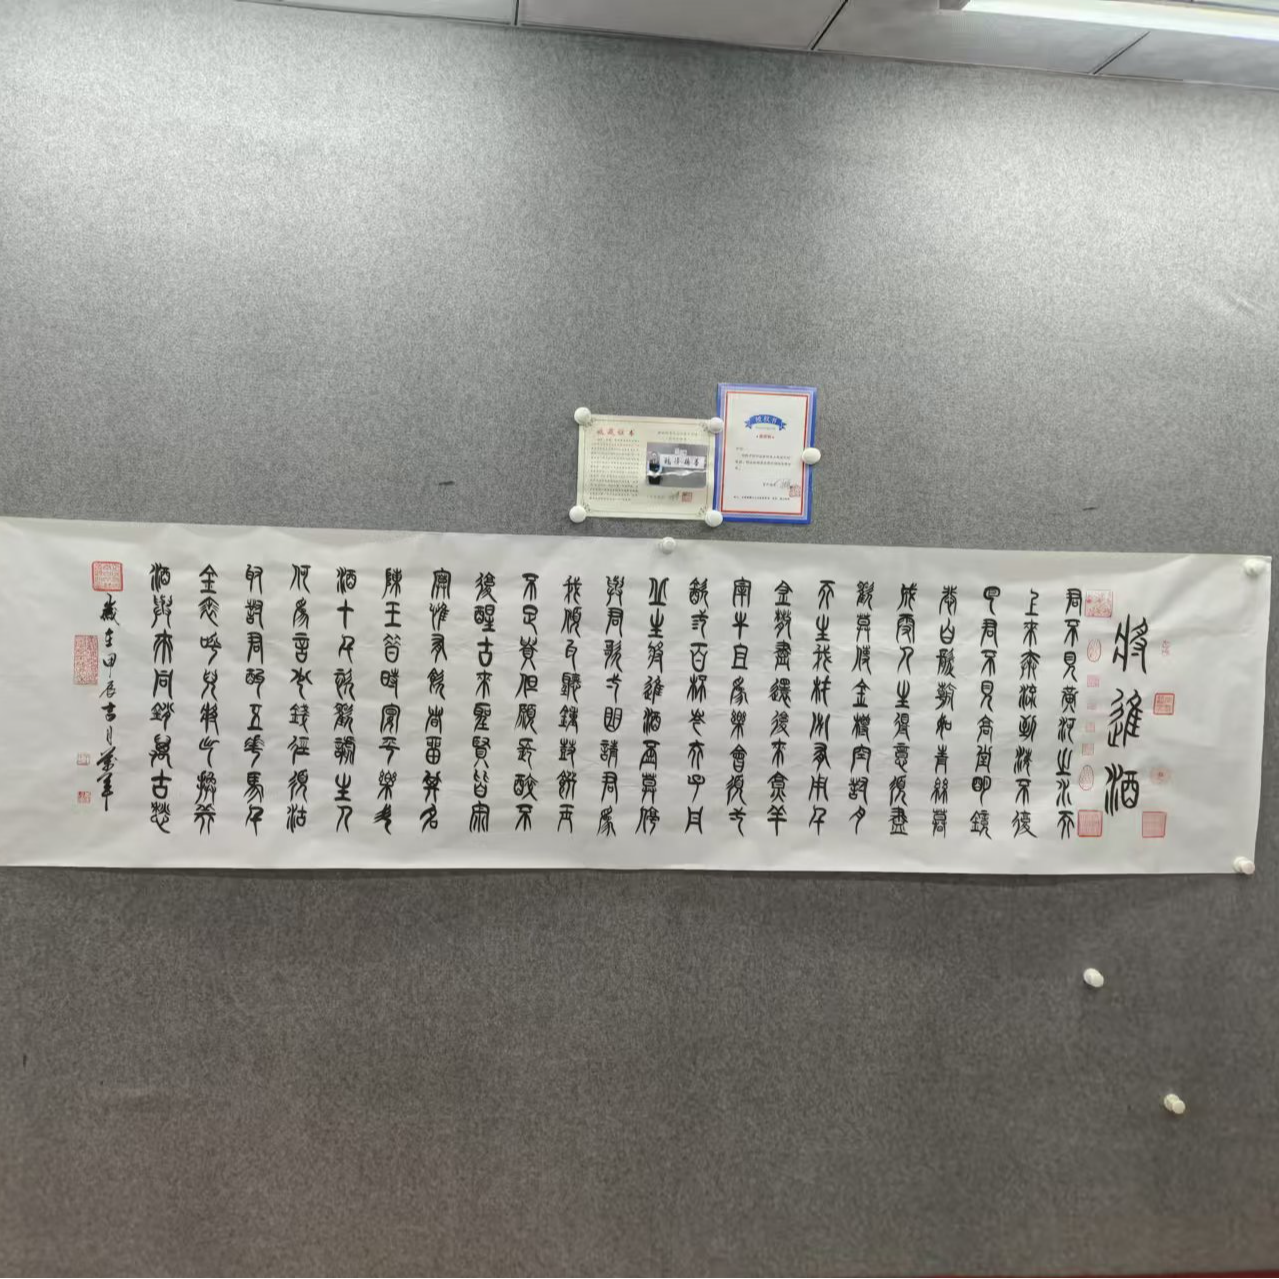 將進酒
君不見黃河之水天
上來奔流到海不復
回君不見高堂明鏡
悲白髮朝如青絲暮
成雪人生得意須盡
歡莫使金樽空對月
天生我材必有用千
金散盡還復來烹羊
宰牛且為樂會須一
飲三百杯岑夫子丹
丘生將進酒杯莫停
與君歌一曲請君為
我傾耳聽鐘鼓饌玉
不足貴但願長醉不
復醒古來聖賢皆寂
寞惟有飲者留其名
陳王昔時宴平樂斗
酒十千恣歡謔主人
何為言少錢徑須沽
取對君酌五花馬千
金裘呼兒將出換美
酒與爾同銷萬古愁
歲在甲辰吉月
收藏證書
授权书